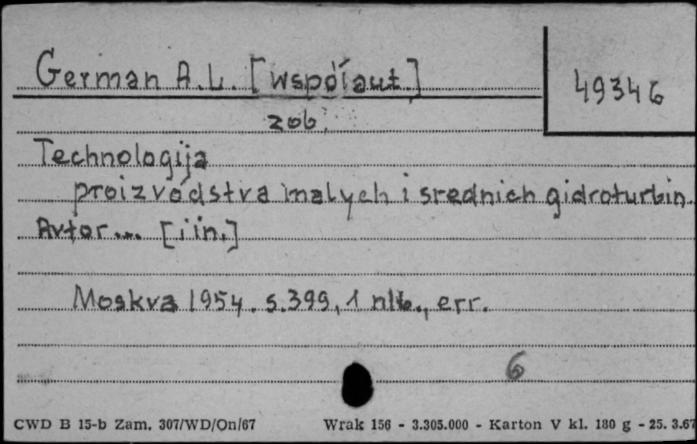 German A.L. [współaut.]
49346
zob.
Technologija
proizvodstva malych i srednich gidroturbin.
Avtor... [i in.]
Moskva 1954. s.399, 1 nlb., err.
6
CWD B 15-b Zam. 307/WD/On/67 Wrak 156 - 3.305.000 - Karton V kl. 180 g - 25. 3.67